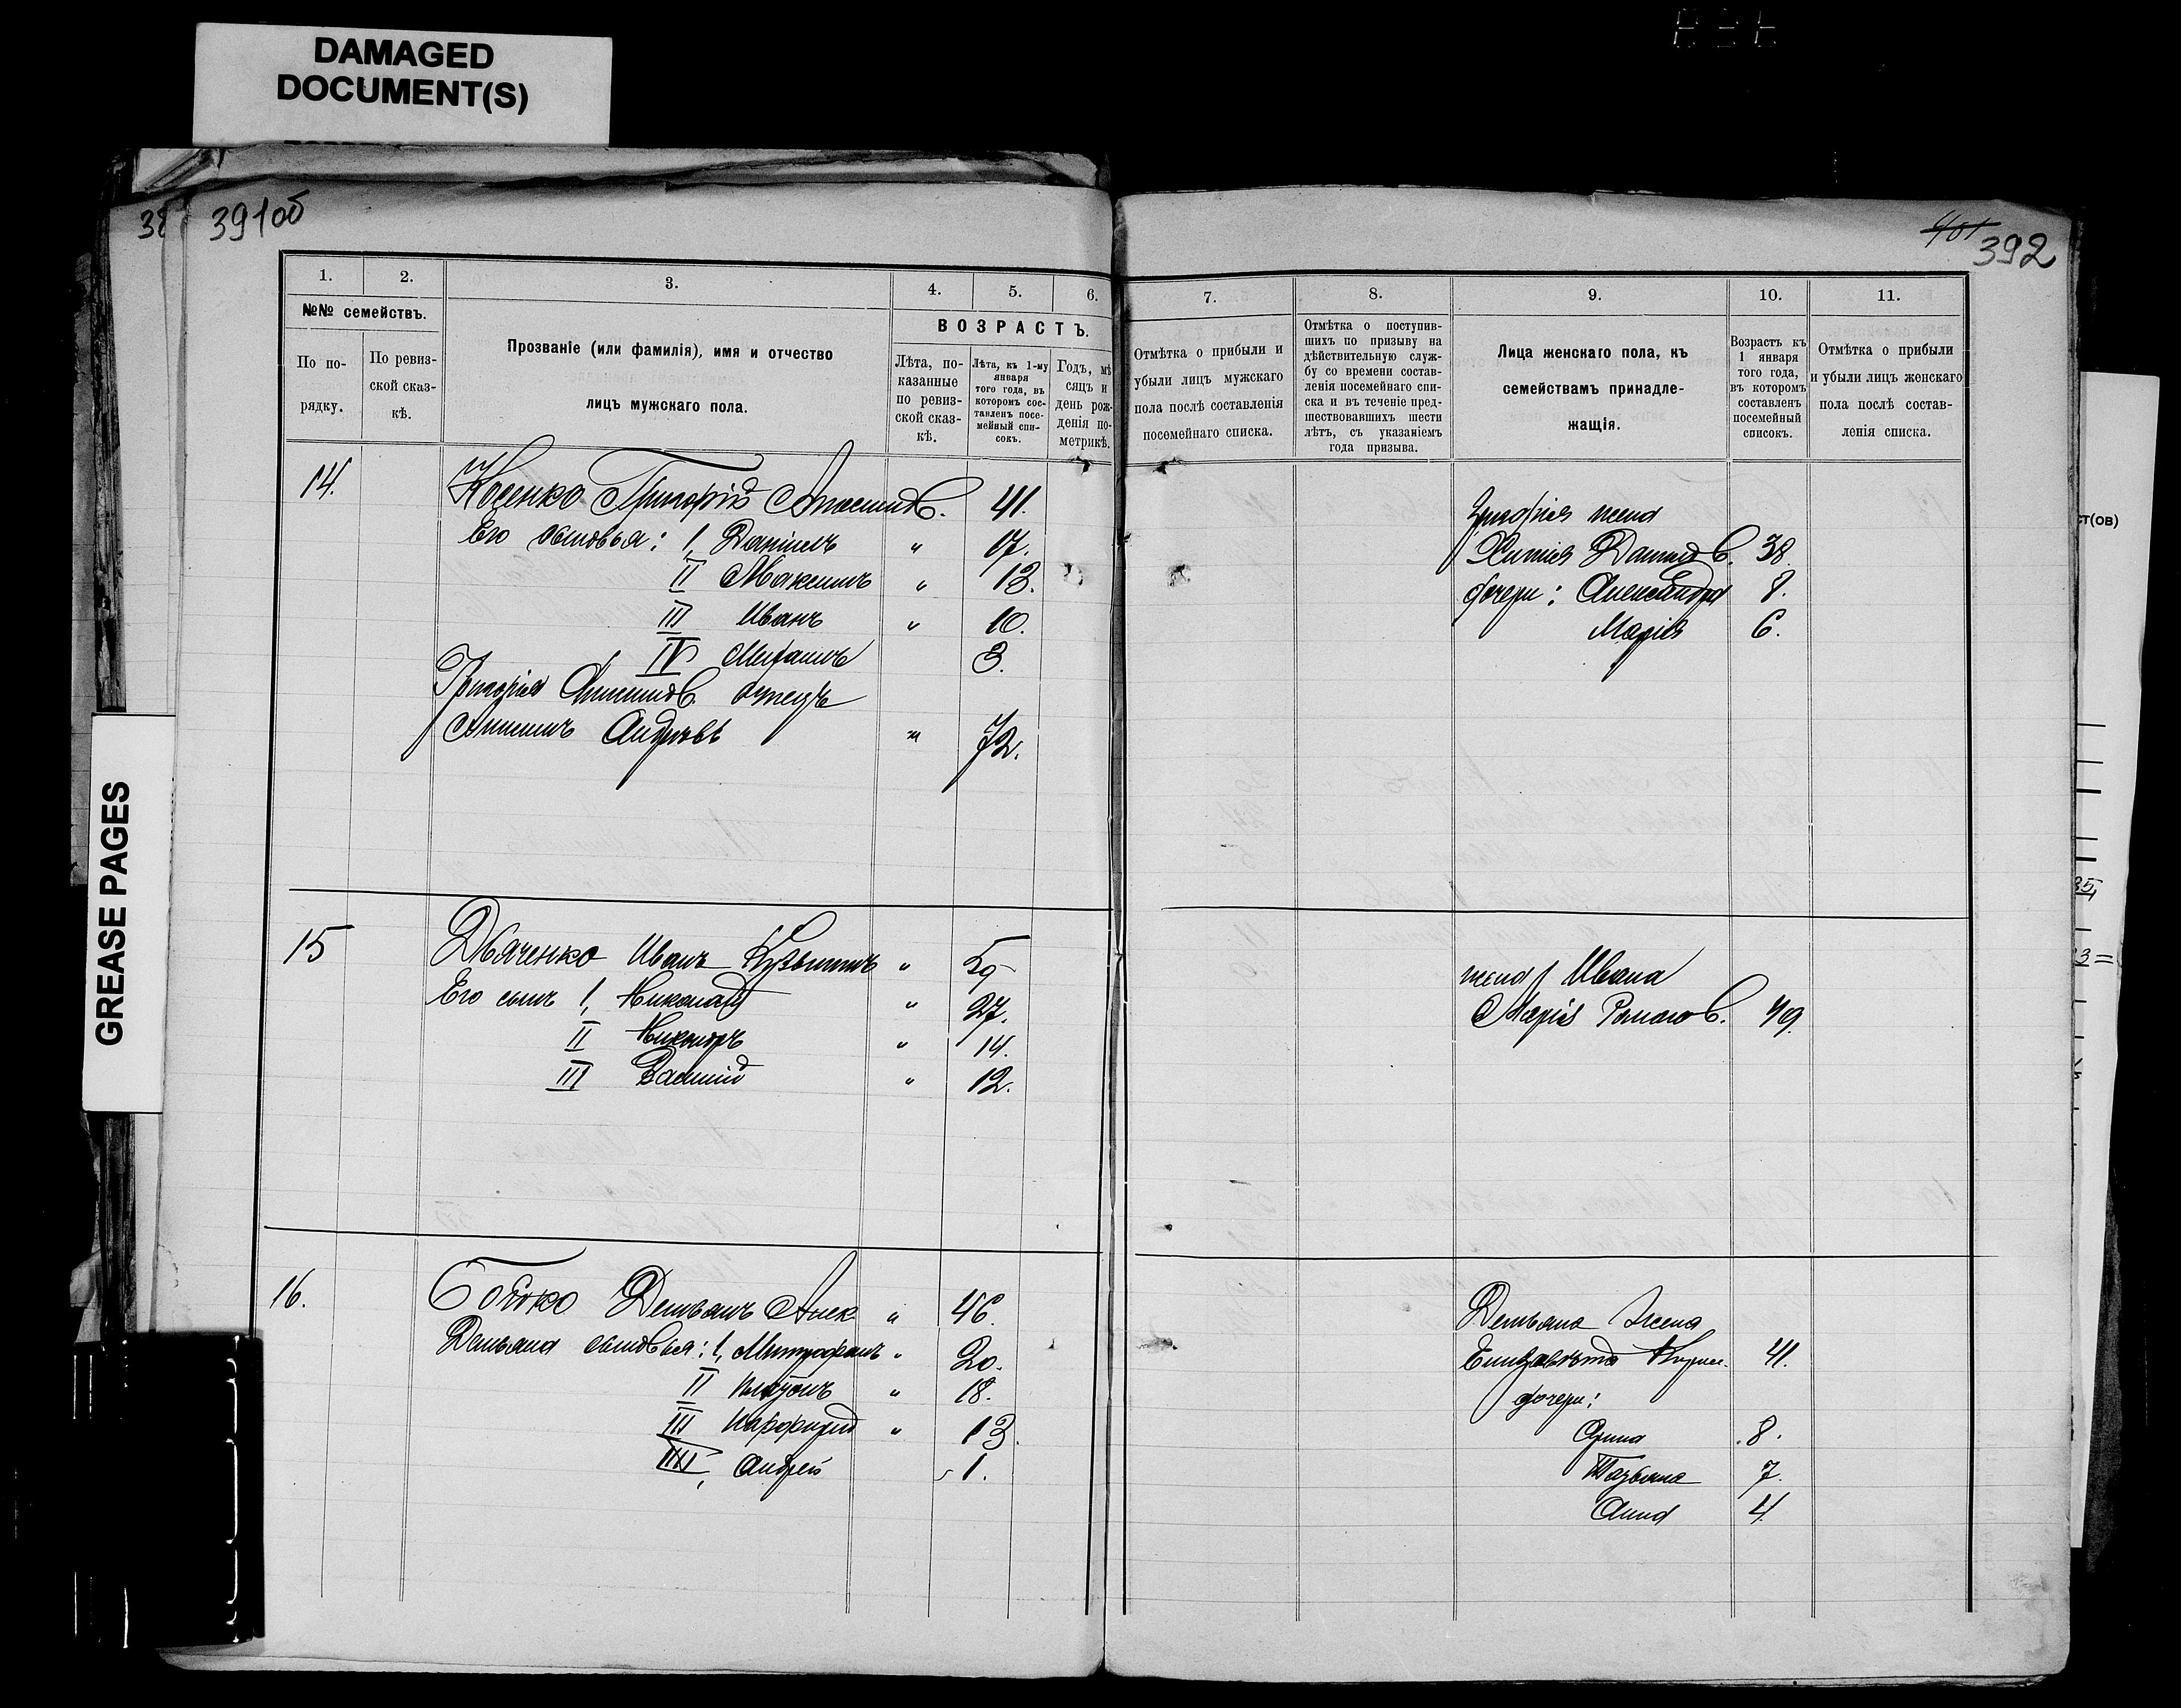 DAMAGED
DOCUMENT(S)
GREASE PAGES
38
391об
401
392
1.
2.
3.
4.
5.
6.
№№ семействъ.
По порядку.
По ревизской сказкѣ.
Прозваніе (или фамилія), имя и отчество
лицъ мужскаго пола.
ВОЗРАСТЪ.
Лѣта, показанные по ревизской сказкѣ.
Лѣта, къ 1-му января того года, въ которомъ составленъ посемейный списокъ.
Годъ, мѣсяцъ и день рожденія по метрикѣ.
7.
8.
9.
10.
11.
Отмѣтка о прибыли и
убыли лицъ мужскаго
пола послѣ составленія
посемейнаго списка.
Отмѣтка о поступив-
шихъ по призыву на
дѣйствительную служ-
бу со времени состав-
ленія посемейнаго спи-
ска и въ теченіе пред-
шествовавшихъ шести
лѣтъ, съ указаніемъ
года призыва.
Лица женскаго пола, къ
семействамъ принадле-
жащія.
Возрастъ къ
1 января
того года,
въ которомъ
составленъ
посемейный
списокъ.
Отмѣтка о прибыли
и убыли лицъ женскаго
пола послѣ состав-
ленія списка.
14. Косенко Григорій 41.
Его сыновья: 1, Даніилъ " 17.
II Максимъ " 13.
III Иванъ " 10.
IV 3.
Григорія отецъ
72.
жена
38.
дочери: Александра 8.
Марія 6.
15 Дьяченко Иванъ Кузьмичъ " 59
Его сынъ 1, Николай " 27.
II Никаноръ " 14.
III Василій " 12.
жена Ивана
Марія Романов. 49
16. Бобко Демьянъ Алек. " 46.
Демьяна сыновья: 1, Митрофанъ " 20.
II Платонъ " 18.
III " 13.
IIII, Андрей 1.
Демьяна жена
Елизавѣта 41.
дочери:
Арина 8.
Татьяна 7.
Анна 4
ст(ов)